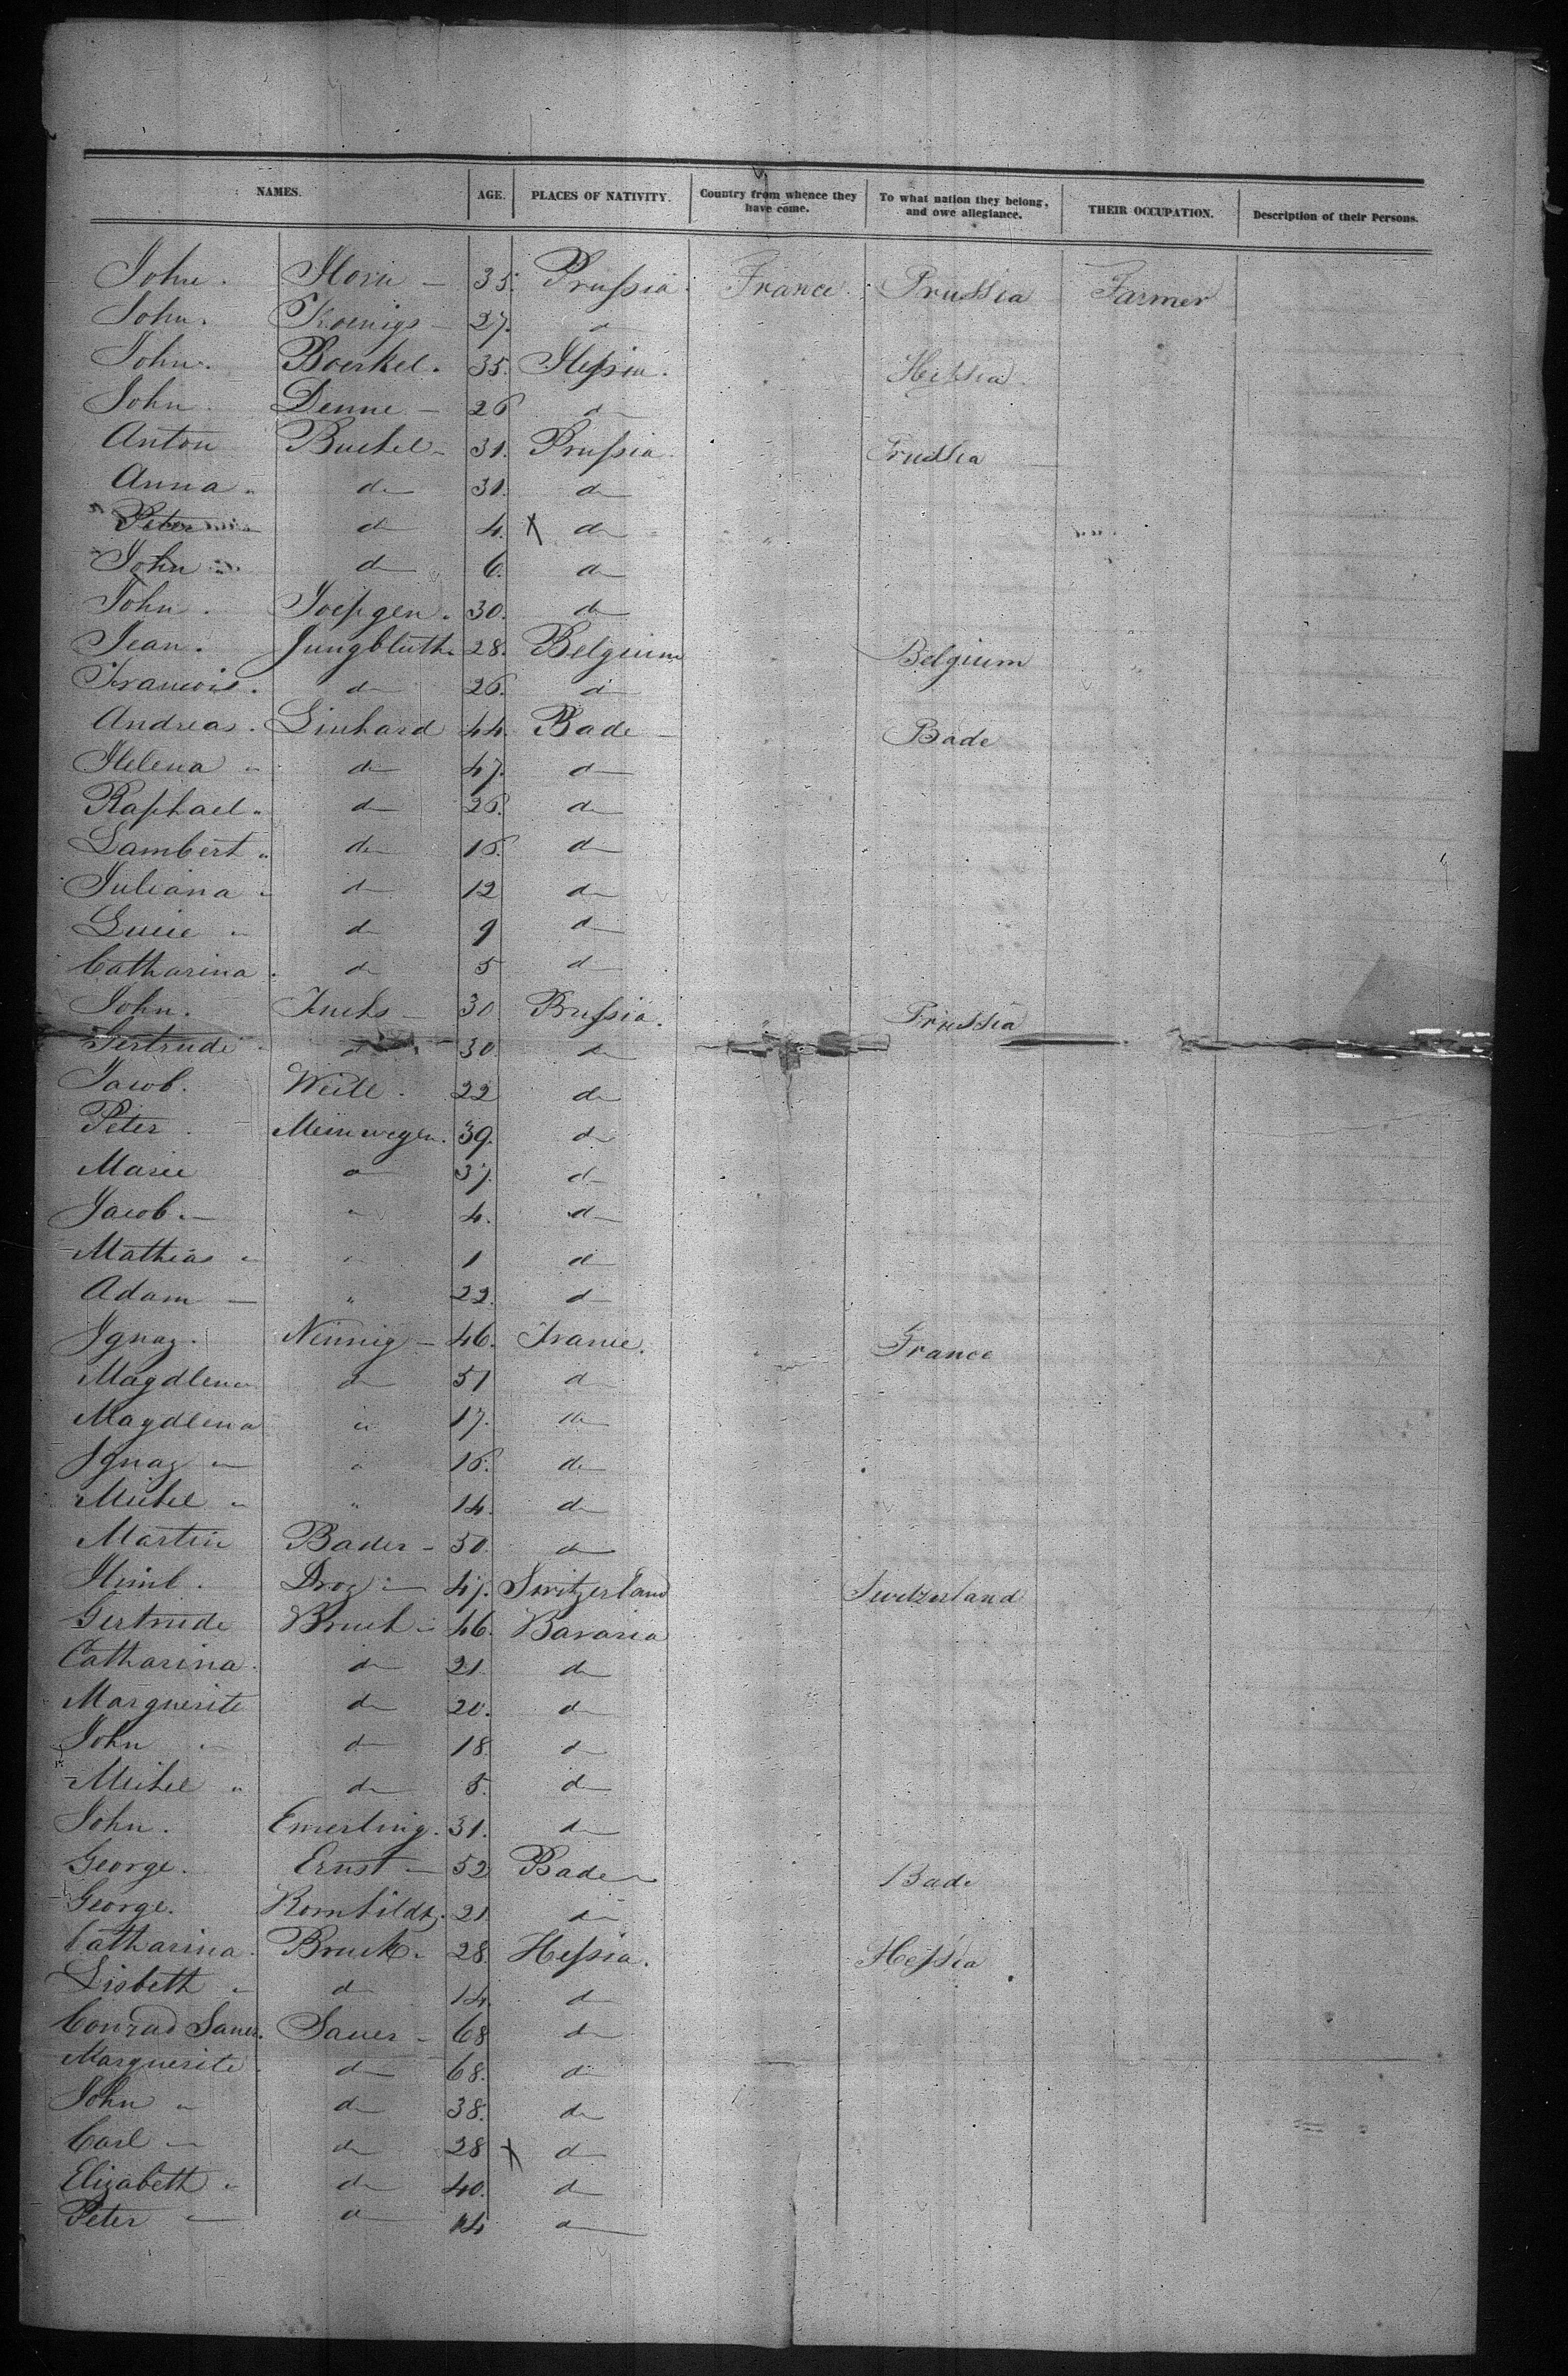 NAMES. AGE. PLACES OF NATIVITY. Country from whence they have come. To what nation they belong, and owe allegiance. THEIR OCCUPATION. Description of their Persons.
John. Horn - 35. Prussia. France. Prussia Farmer
John. Koenigs - 27. d
John. Boerkel. 35. Hessia. Hessia
John. Denne - 26 d
Anton Buchel - 31. Prussia. Prussia
Anna " do 31. do
Peter do 4. X do
John do 6. do
John. Joepgen. 30. do
Jean. Jungbluth. 28. Belgium Belgium
Francois. do 26. d
Andreas. Linhard 44. Bade - Bade
Helena " do 47. d
Raphael " do 26. do
Lambert " do 16. do
Juliana " d 12 do
Lucie " d 9 d
Catharina. d 5 d
John. Fuchs - 30 Prussia. Prussia
Gertrude d 30. do
Jacob. 22 do
Peter. Meinwegen. 39. do
Marie d 37. d
Jacob. - " 4. d
Mathias " " 1 d
Adam - " 22. d
Ignaz. Nennig - 46. France. France
Magdlena d 51 d
Magdlena " 17. do
Ignaz " " 16. do
Michel " " 14. do
Martin Bader - 50. do
Droz - 47. Switzerland Switzerland
Gertrude Bruch - 46. Bavaria
Catharina. do 21. do
Marguerite do 20. d
John " d 18. d
Michel " do 5. do
John. Emerling. 31. do
George. Ernst - 52 Bade Bade
George. 21. do
Catharina. Bruch. 28. Hessia. Hessia
Lisbeth " d 14. d
Conrad Sauer. Sauer - 68 do
Marguerite. do 68. do
John " do 38. do
Carl - do 28 X d
Elizabeth " do 40. d
Peter - d 14 d